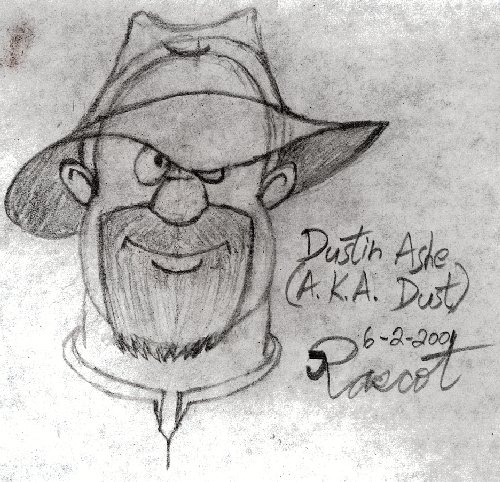 Dustin Ashe
(A.K.A. Dust)
6-2-2001
Rascot